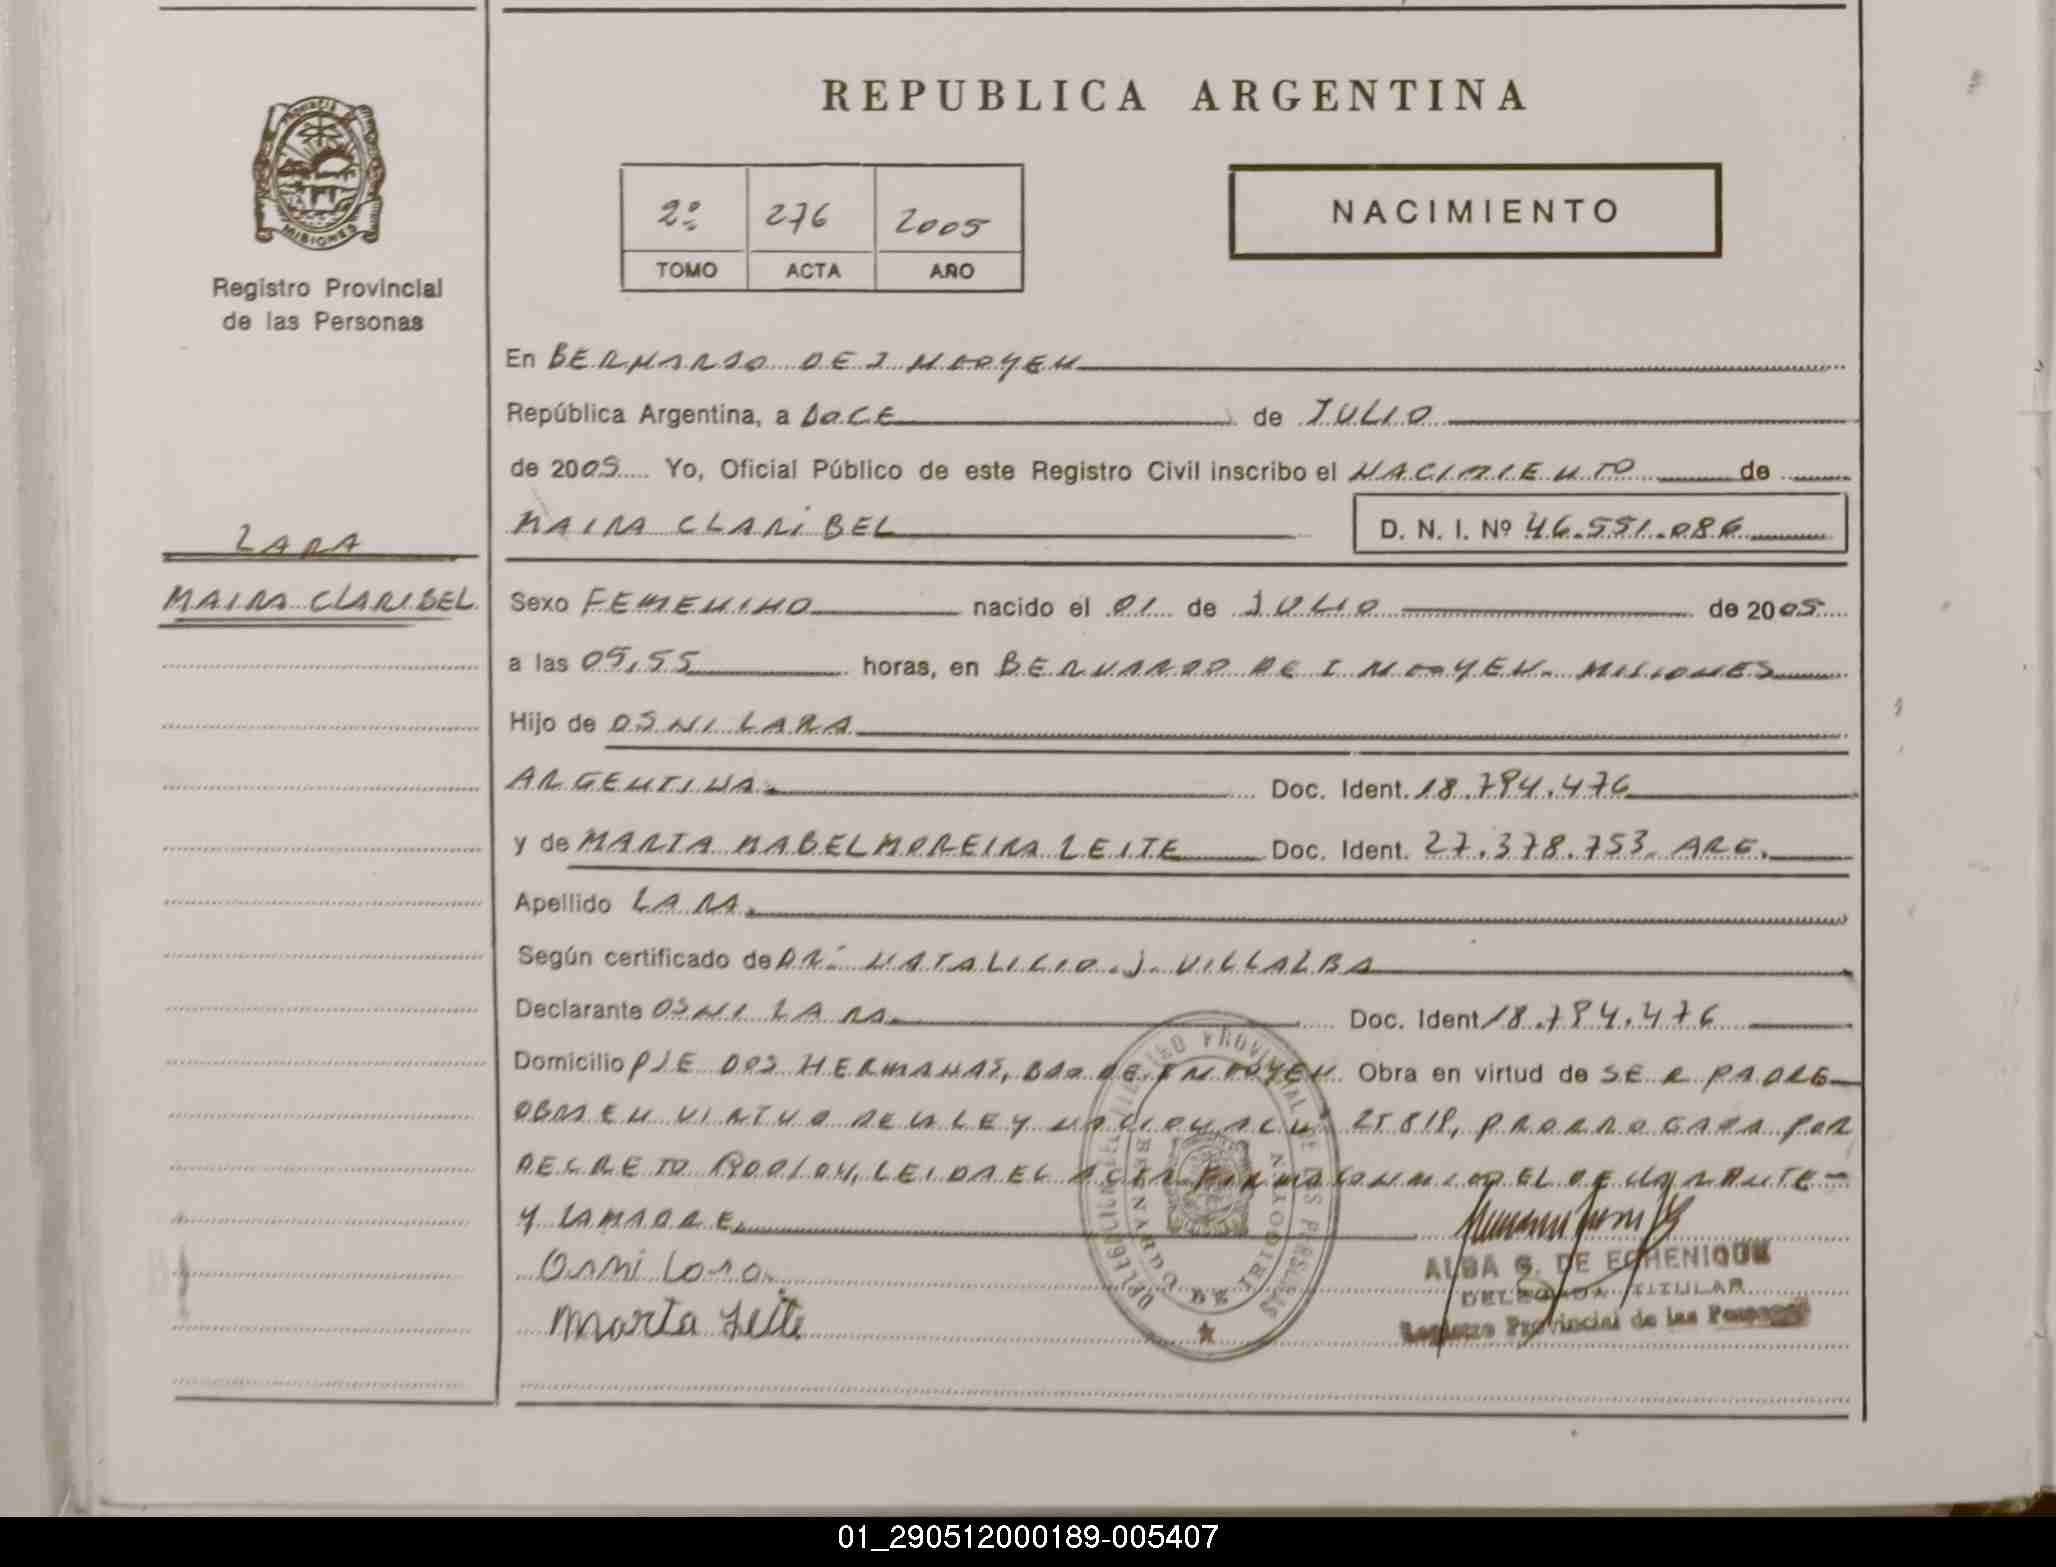 REPUBLICA ARGENTINA
PROVINCIA
MISIONES
Registro Provincial
de las Personas
2º 276 2005
TOMO ACTA AÑO
NACIMIENTO
En BERNARDO DE IRIGOYEN
República Argentina, a DOCE de JULIO
de 2005 Yo, Oficial Público de este Registro Civil inscribo el NACIMIENTO de
MAIRA CLARIBEL D. N. I. Nº 46.551.086
LARA
MAIRA CLARIBEL
Sexo FEMENINO nacido el 01 de JULIO de 2005
a las 05,55 horas, en BERNARDO DE IRIGOYEN. MISIONES
Hijo de OSNI LARA
ARGENTINA. Doc. Ident. 18.794.476
y de MARTA MABEL MOREIRA LEITE Doc. Ident. 27.378.753. ARG.
Apellido LARA.
Según certificado de DR: NATALICIO. J. VILLALBA
Declarante OSNI LARA. Doc. Ident 18.794.476
Domicilio PJE DOS HERMANAS, BDO DE IRIGOYEN Obra en virtud de SER PADRE
OBRA EN VIRTUD DE LA LEY NACIONAL Nº 25819, PRORROGADA POR
DECRETO LEIDA EL ACTA FIRMA CONMIGO EL DECLARANTE
Y LA MADRE.
Osni Lara
Marta Leite
ALBA G. DE ECHENIQUE
DELEGADA TITULAR
Registro Provincial de las Personas
REGISTRO PROVINCIAL DE LAS PERSONAS
BERNARDO DE IRIGOYEN
01_290512000189-005407